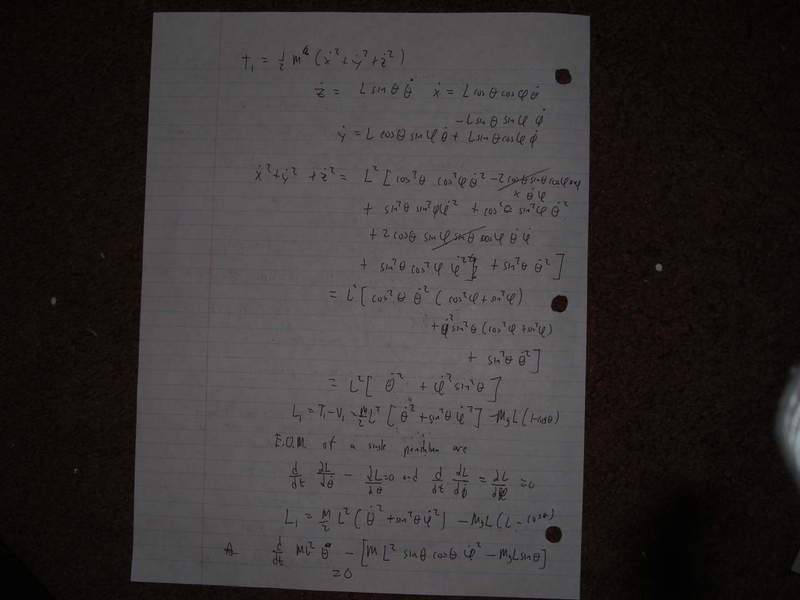 T₁ = ½ m (ẋ² + ẏ² + ż²)
ż = L sinθ θ̇   ẋ = L cosθ cosφ θ̇
- L sinθ sinφ φ̇
ẏ = L cosθ sinφ θ̇ + L sinθ cosφ φ̇
ẋ² + ẏ² + ż² = L² [ cos²θ cos²φ θ̇² - 2 cosθ sinθ cosφ
x θ̇ φ̇
+ sin²θ sin²φ φ̇² + cos²θ sin²φ θ̇²
+ 2 cosθ sinφ sinθ cosφ θ̇ φ̇
+ sin²θ cos²φ φ̇² + sin²θ θ̇² ]
= L² [ cos²θ θ̇² ( cos²φ + sin²φ )
+ φ̇² sin²θ (cos²φ + sin²φ)
+ sin²θ θ̇² ]
= L² [ θ̇² + φ̇² sin²θ ]
L₁ = T₁ - V₁ = M/2 L² [ θ̇² + sin²θ φ̇² ] - MgL (1-cosθ)
E.O.M. of a single pendulum are
d/dt ∂L/∂θ̇ - ∂L/∂θ = 0 and d/dt ∂L/∂φ̇ = ∂L/∂φ = 0
L₁ = M/2 L² ( θ̇² + sin²θ φ̇² ) - MgL ( L - cosθ)
d/dt ML² θ̇ - [ M L² sinθ cosθ φ̇² - MgL sinθ ]
= 0